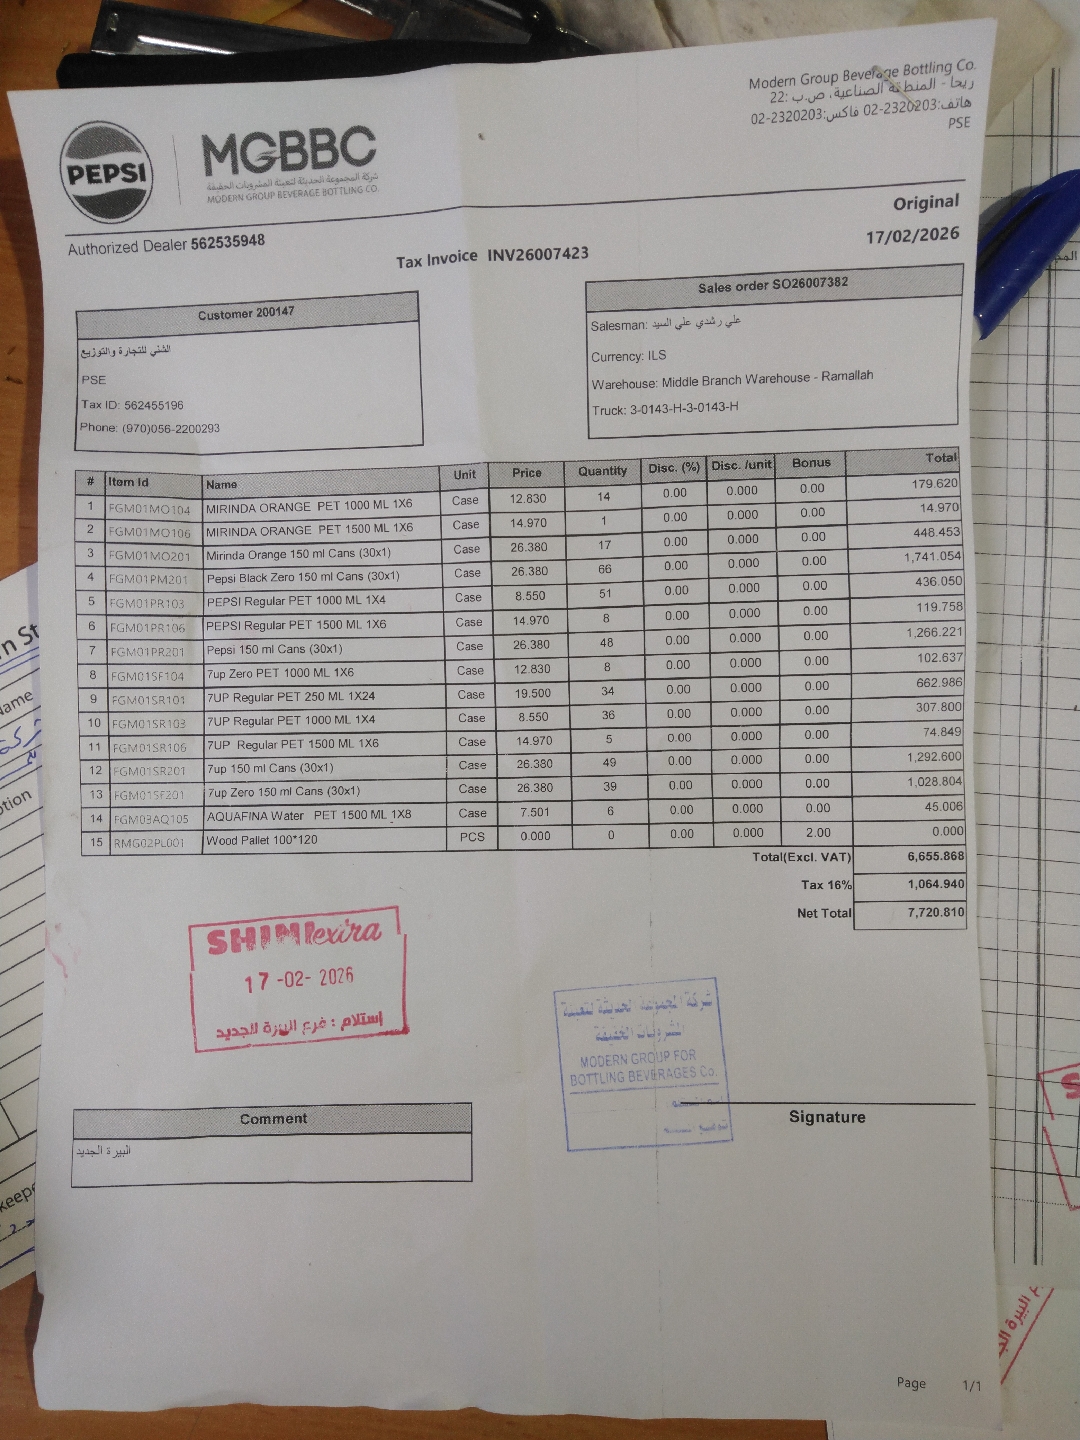 Modern Group Beverage Bottling Co.
ريحا - المنطقة الصناعية، ص.ب :22
هاتف:02-2320203 فاكس:02-2320203
PSE
PEPSI
MGBBC
شركة المجموعة الحديثة لتعبئة المشروبات الخفيفة
MODERN GROUP BEVERAGE BOTTLING CO.
Original
Authorized Dealer 562535948
17/02/2026
Tax Invoice INV26007423
Customer 200147
الشني للتجارة والتوزيع
PSE
Tax ID: 562455196
Phone: (970)056-2200293
Sales order SO26007382
Salesman: علي رشدي علي السيد
Currency: ILS
Warehouse: Middle Branch Warehouse - Ramallah
Truck: 3-0143-H-3-0143-H
# Item Id Name Unit Price Quantity Disc. (%) Disc. /unit Bonus Total
1 FGM01MO104 MIRINDA ORANGE PET 1000 ML 1X6 Case 12.830 14 0.00 0.000 0.00 179.620
2 FGM01MO106 MIRINDA ORANGE PET 1500 ML 1X6 Case 14.970 1 0.00 0.000 0.00 14.970
3 FGM01MO201 Mirinda Orange 150 ml Cans (30x1) Case 26.380 17 0.00 0.000 0.00 448.453
4 FGM01PM201 Pepsi Black Zero 150 ml Cans (30x1) Case 26.380 66 0.00 0.000 0.00 1,741.054
5 FGM01PR103 PEPSI Regular PET 1000 ML 1X4 Case 8.550 51 0.00 0.000 0.00 436.050
6 FGM01PR106 PEPSI Regular PET 1500 ML 1X6 Case 14.970 8 0.00 0.000 0.00 119.758
7 FGM01PR201 Pepsi 150 ml Cans (30x1) Case 26.380 48 0.00 0.000 0.00 1,266.221
8 FGM01SF104 7up Zero PET 1000 ML 1X6 Case 12.830 8 0.00 0.000 0.00 102.637
9 FGM01SR101 7UP Regular PET 250 ML 1X24 Case 19.500 34 0.00 0.000 0.00 662.986
10 FGM01SR103 7UP Regular PET 1000 ML 1X4 Case 8.550 36 0.00 0.000 0.00 307.800
11 FGM01SR106 7UP Regular PET 1500 ML 1X6 Case 14.970 5 0.00 0.000 0.00 74.849
12 FGM01SR201 7up 150 ml Cans (30x1) Case 26.380 49 0.00 0.000 0.00 1,292.600
13 FGM01SF201 7up Zero 150 ml Cans (30x1) Case 26.380 39 0.00 0.000 0.00 1,028.804
14 FGM03AQ105 AQUAFINA Water PET 1500 ML 1X8 Case 7.501 6 0.00 0.000 0.00 45.006
15 RMG02PL001 Wood Pallet 100*120 PCS 0.000 0 0.00 0.000 2.00 0.000
Total(Excl. VAT) 6,655.868
Tax 16% 1,064.940
Net Total 7,720.810
SHINI exira
17-02-2026
إستلام : فرع البيرة الجديد
شركة المجموعة الحديثة لتعبئة
المشروبات الخفيفة
MODERN GROUP FOR
BOTTLING BEVERAGES Co.
Signature
Comment
البيرة الجديد
Page 1/1